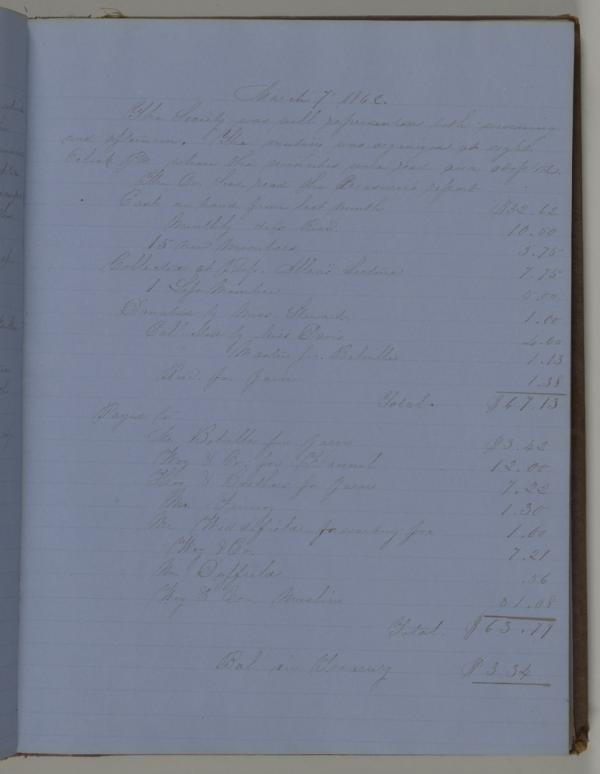 March 7 1862.
The Society was well represented both morning
and afternoon. The meeting was organized at eight
O'clock P.M. when the minutes were read and adopted.
The Cor. Sec. read the Treasurer's report
Cash on hand from last month $32.62
Monthly dues Recd. 10.00
15 new members 3.75
Collected at Prof. Allen's Lecture 7.75
1 Life Member 5.00
Donated by Miss. Stewart 1.00
Collected by Miss Davis 4.00
Master for Batville 1.13
Recd. for Yarn 1.38
Total. $67.13
Payed to
Mr. for Yarn $3.42
Hoy & Co. for Flannel 12.00
for Yarn 7.22
Mr. 1.30
Mr. for 1.60
Hoy & Co. 7.21
Mr. Duffield .36
Hoy & Co. Muslin 31.08
Total. $63.79
Bal in Treasury $3.34